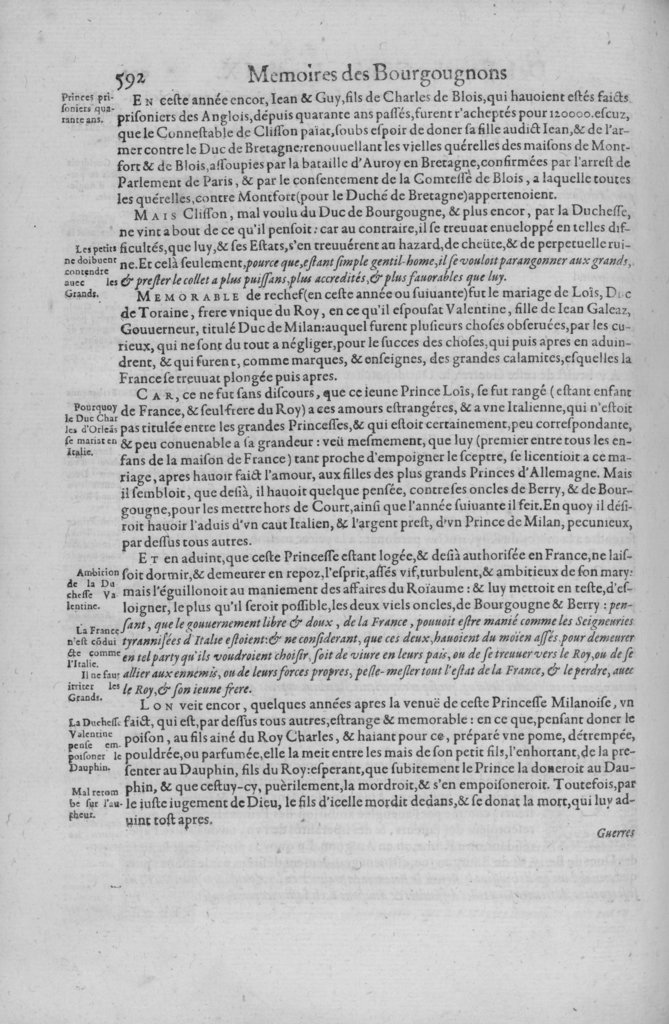 592
Memoires des Bourgougnons
Princes pri-
soniers qua-
rante ans.
EN ceste année encor, Iean & Guy, fils de Charles de Blois, qui hauoient estés faicts
prisoniers des Anglois, dépuis quarante ans passés, furent r'acheptés pour 120000. escuz,
que le Connestable de Clisson païat, soubs espoir de doner sa fille audict Iean, & de l'ar-
mer contre le Duc de Bretagne: renouuellant les vielles quérelles des maisons de Mont-
fort & de Blois, assoupies par la bataille d'Auroy en Bretagne, confirmées par l'arrest de
Parlement de Paris, & par le consentement de la Comtessé de Blois, a laquelle toutes
les quérelles, contre Montfort (pour le Duché de Bretagne) appertenoient.
MAIS Clisson, mal voulu du Duc de Bourgougne, & plus encor, par la Duchesse,
ne vint a bout de ce qu'il pensoit: car au contraire, il se treuuat enueloppé en telles dif-
Les petits
ne doibuent
contendre
auec les
Grands.
ficultés, que luy, & ses Estats, s'en treuuérent au hazard, de cheüte, & de perpetuelle rui-
ne. Et celà seulement, pource que, estant simple gentil-home, il se vouloit parangonner aux grands,
& prester le collet a plus puissans, plus accredités, & plus fauorables que luy.
MEMORABLE de rechef (en ceste année ou suiuante) fut le mariage de Loïs, Duc
de Toraine, frere vnique du Roy, en ce qu'il espousat Valentine, fille de Iean Galeaz,
Gouuerneur, titulé Duc de Milan: auquel furent plusieurs choses obseruées, par les cu-
rieux, qui ne sont du tout a négliger, pour le succes des choses, qui puis apres en aduin-
drent, & qui furent, comme marques, & enseignes, des grandes calamites, esquelles la
France se treuuat plongée puis apres.
CAR, ce ne fut sans discours, que ce ieune Prince Loïs, se fut rangé (estant enfant
Pourquoy
le Duc Char
les d'Orleãs
se mariat en
Italie.
de France, & seul frere du Roy) a ces amours estrangéres, & a vne Italienne, qui n'estoit
pas titulée entre les grandes Princesses, & qui estoit certainement, peu correspondante,
& peu conuenable a sa grandeur: veü mesmement, que luy (premier entre tous les en-
fans de la maison de France) tant proche d'empoigner le sceptre, se licentioit a ce ma-
riage, apres hauoir faict l'amour, aux filles des plus grands Princes d'Allemagne. Mais
il sembloit, que desià, il hauoit quelque pensée, contre ses oncles de Berry, & de Bour-
gougne, pour les mettre hors de Court, ainsi que l'année suiuante il feit. En quoy il dési-
roit hauoir l'aduis d'vn caut Italien, & l'argent prest, d'vn Prince de Milan, pecunieux,
par dessus tous autres.
ET en aduint, que ceste Princesse estant logée, & desià authorisée en France, ne lais-
Ambition
de la Du
chesse Va
lentine.
soit dormir, & demeurer en repoz, l'esprit, assés vif, turbulent, & ambitieux de son mary:
mais l'éguillonoit au maniement des affaires du Roïaume: & luy mettoit en teste, d'es-
loigner, le plus qu'il seroit possible, les deux viels oncles, de Bourgougne & Berry: pen-
sant, que le gouuernement libre & doux, de la France, pouuoit estre manié comme les Seigneuries
La France
n'est cõdui
cte comme
l'Italie.
tyrannisées d'Italie estoient: & ne considerant, que ces deux, hauoient du moïen assés, pour demeurer
en tel party qu'ils voudroient choisir, soit de viure en leurs païs, ou de se treuuer vers le Roy, ou de se
Il ne faut
irriter les
Grands.
allier aux ennemis, ou de leurs forces propres, pesle-mesler tout l'estat de la France, & le perdre, auec
le Roy, & son ieune frere.
LON veit encor, quelques années apres la venuë de ceste Princesse Milanoise, vn
La Duchesse
Valentine
pense em-
poisoner le
Dauphin.
faict, qui est, par dessus tous autres, estrange & memorable: en ce que, pensant doner le
poison, au fils ainé du Roy Charles, & haiant pour ce, préparé vne pome, détrempée,
pouldrée, ou parfumée, elle la meit entre les mais de son petit fils, l'enhortant, de la pre-
senter au Dauphin, fils du Roy: esperant, que subitement le Prince la doneroit au Dau-
Mal retom
be sur l'au-
theur.
phin, & que cestuy-cy, puèrilement, la mordroit, & s'en empoisoneroit. Toutefois, par
le iuste iugement de Dieu, le fils d'icelle mordit dedans, & se donat la mort, qui luy ad-
uint tost apres.
Guerres